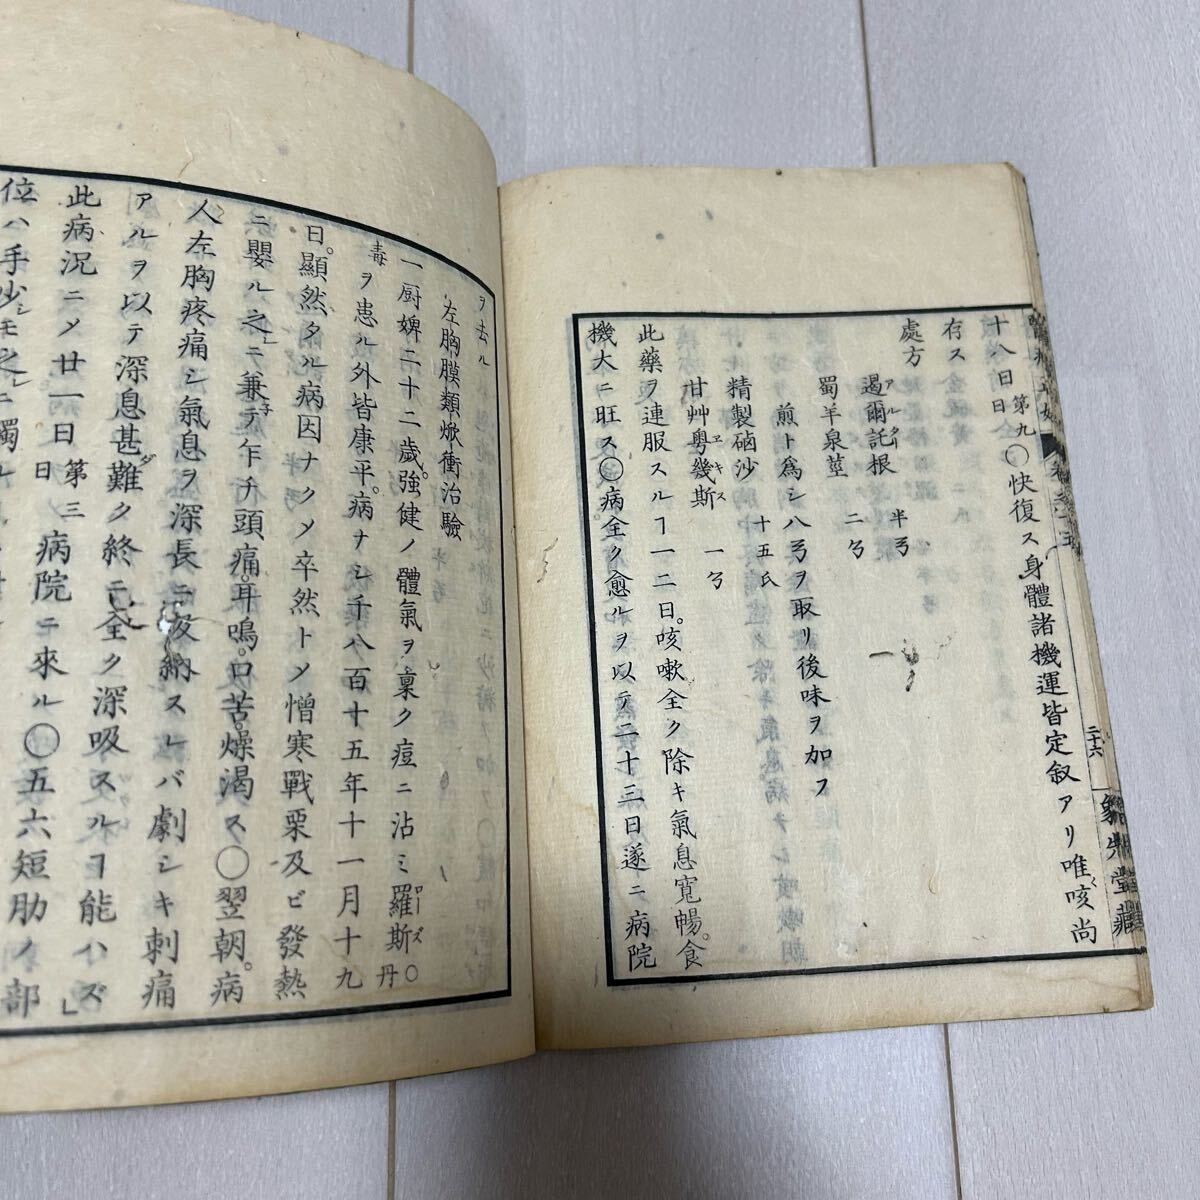 十八日第九日〇快復ス身體諸機運皆定敍アリ唯咳尚
存ス
處方
遏爾託根 半弓
アルター
蜀羊泉莖 二弓
煎ト爲シ八弓ヲ取リ後味ヲ加フ
精製硇沙 十五氏
甘艸粤幾斯 一弓
ヱキス
此藥ヲ連服スルヿ一二日。咳嗽全ク除キ氣息寬暢。食
機大ニ旺ス〇病全ク愈ルヲ以テ二十三日遂ニ病院
二十六
堂藏
ヲ去ル
左胸膜類焮衝治驗
一厨婢二十二歲。強健ノ體氣ヲ稟ク痘ニ沾ミ羅斯〇丹
ローズ
毒ヲ患ル外皆康平。病ナシ千八百十五年十一月十九
日。顯然タル病因ナクメ卒然トメ憎寒戰栗及ビ發熱
ニ嬰ル之ニ兼テ乍チ頭痛。耳鳴。口苦。燥渴ス〇翌朝。病
人左胸疼痛シ氣息ヲ深長ニ吸納スレバ劇シキ刺痛
アルヲ以テ深息甚難ク終ニ全ク深吸スルヿ能ハズ
此病況ニメ廿一日第三日病院ニ來ル〇五六短肋ノ部
位ハ手少シモ之ニ觸ル